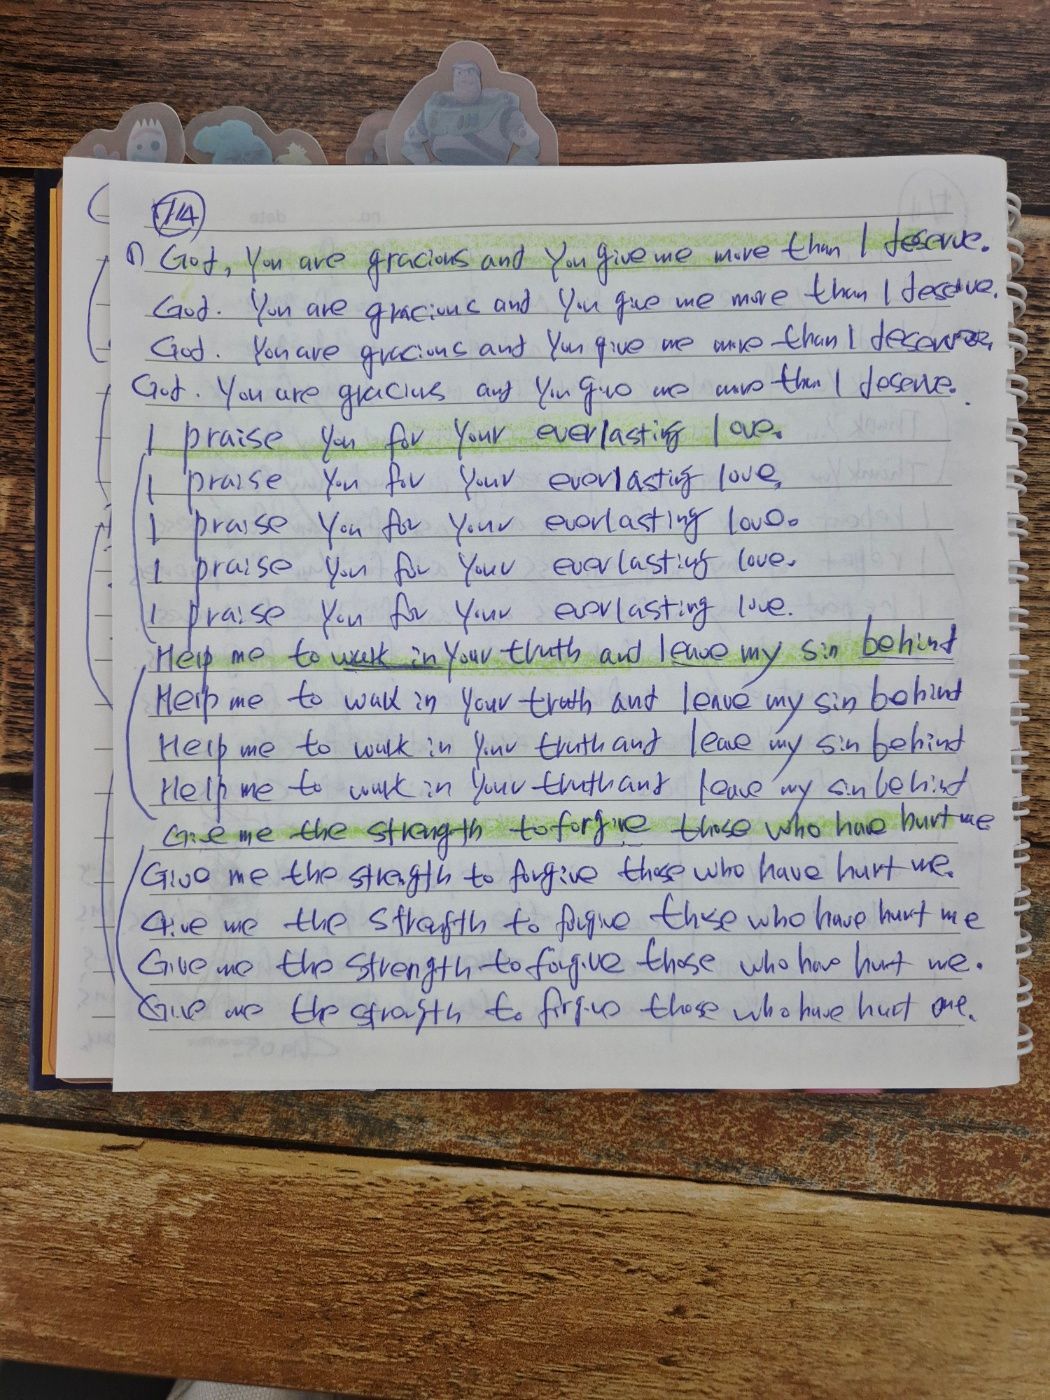 7/4
1) God, You are gracious and You give me more than I deserve.
God. You are gracious and You give me more than I deserve.
God. You are gracious and You give me more than I deserve.
God. You are gracius and You give me more than I deserve.
I praise You for Your everlasting love.
I praise You for Your everlasting love,
I praise You for Your everlasting love.
I praise You for Your everlasting love.
I praise You for Your everlasting love.
Help me to walk in Your truth and leave my sin behind
Help me to walk in Your truth and leave my sin behind
Help me to walk in Your truth and leave my sin behind
Help me to walk in Your truth and leave my sin behind
Give me the strength to forgive those who have hurt me
Give me the strength to forgive those who have hurt me.
Give me the strength to forgive those who have hurt me
Give me the strength to forgive those who have hurt me.
Give me the strength to forgive those who have hurt me.